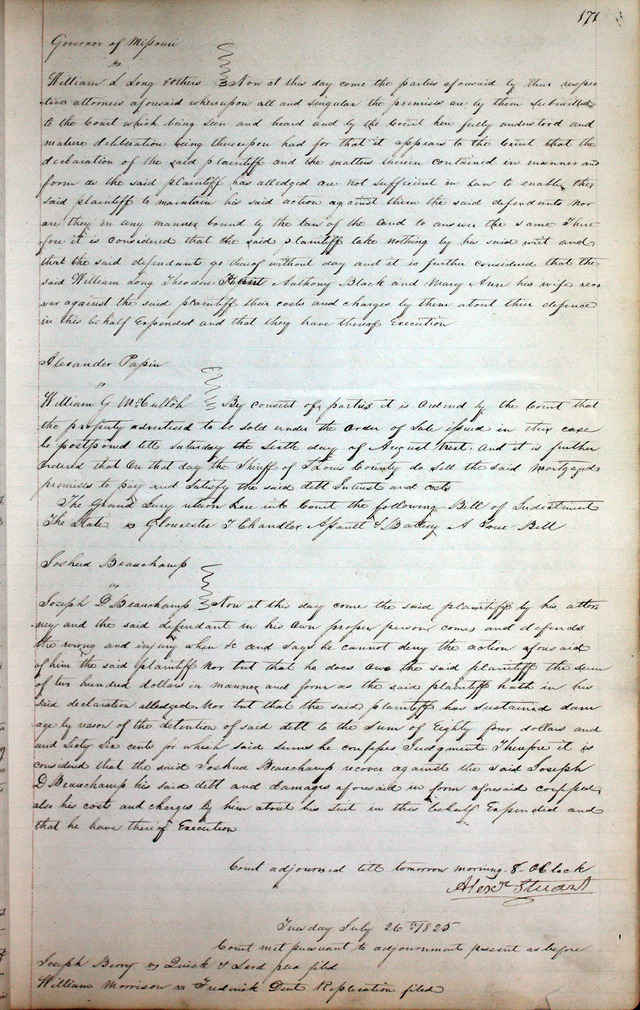 171
Governor of Missouri
vs
William L Long & others Now at this day come the parties aforesaid by their respec
tive attorneis aforesaid whereupon all and singular the premises are by them Submitted
to the Court which being seen and heard and by the Court here fully understood and
mature deliberation being thereupon had for that it appears to the Court that the
declaration of the said plaintiff and the matters therein contained in manner and
form as the said plaintiff has alledged are not sufficient in Law to enable the
said plaintiff to maintain his said action against them the said defendants nor
are they in any manner bound by the law of the land to answer the same There
fore it is considered that the said plaintiff take nothing by his said writ and
that the said defendants go thereof without day and it is further considered that the
said William Long Theodore Anthony Black and Mary Ann his wife reco
ver against the said plaintiff their costs and charges by them about their defence
in this behalf Expended and that they have thereof Execution
Alexander Papin
vs
William G McCulloh By consent of parties it is ordered by the Court that
the property advertised to be sold under the order of Sale issued in this case
be postponed till Saturday the Sixth day of August next. And it is further
Ordered that on that day the Sheriff of St Louis County do sell the said Mortgaged
premises to pay and satisfy the said debt Interest and costs
The Grand Jury return here into Court the following Bill of Indictment
The State vs Gloucester T Chandler Assault & Battery A True Bill
Joshua Beauchamp
vs
Joseph D Beauchamp Now at this day come the said plaintiff by his attor
ney and the said defendant in his own proper person comes and defends
the wrong and injury when &c and says he cannot deny the action aforesaid
of him the said plaintiff Nor but that he does owe the said plaintiff the sum
of two hundred dollars in manner and form as the said plaintiff hath in his
said declaration alledged Nor but that the said plaintiff has sustained dam
age by reason of the detention of said debt to the sum of Eighty four dollars and
and Sixty Six cents for which said sums he confesses Judgment Therefore it is
considered that the said Joshua Beauchamp recover against the said Joseph
D Beauchamp his said debt and damages aforesaid in form aforesaid confessed
also his costs and charges by him about his suit in this behalf Expended and
that he have thereof Execution
Court adjourned till tomorrow morning 8 OClock
Alexr Stuart
Tuesday July 26th 1825
Court met pursuant to adjournment present as before
Joseph Berry vs Quick & Lord plea filed
William Morrison vs Frederick Dent Replication filed